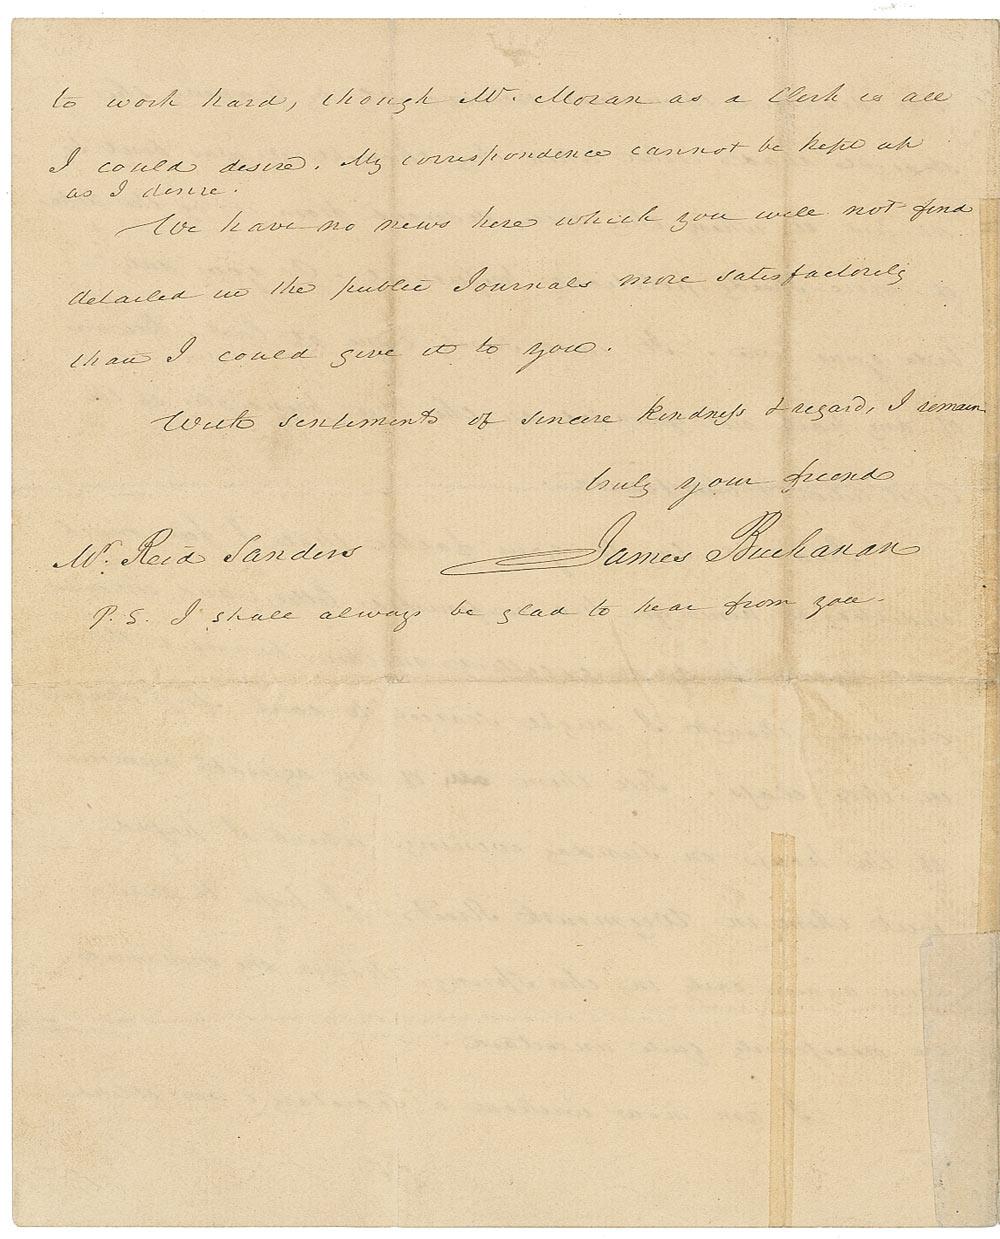 to work hard, though Mr. Moran as a Clerk is all
I could desire. My correspondence cannot be kept up
as I desire.
We have no news here which you will not find
detailed in the public Journals more satisfactorily
than I could give it to you.
With sentiments of sincere kindness & regard, I remain
truly your friend
James Buchanan
Mr. Reid Sanders
P.S. I shall always be glad to hear from you.